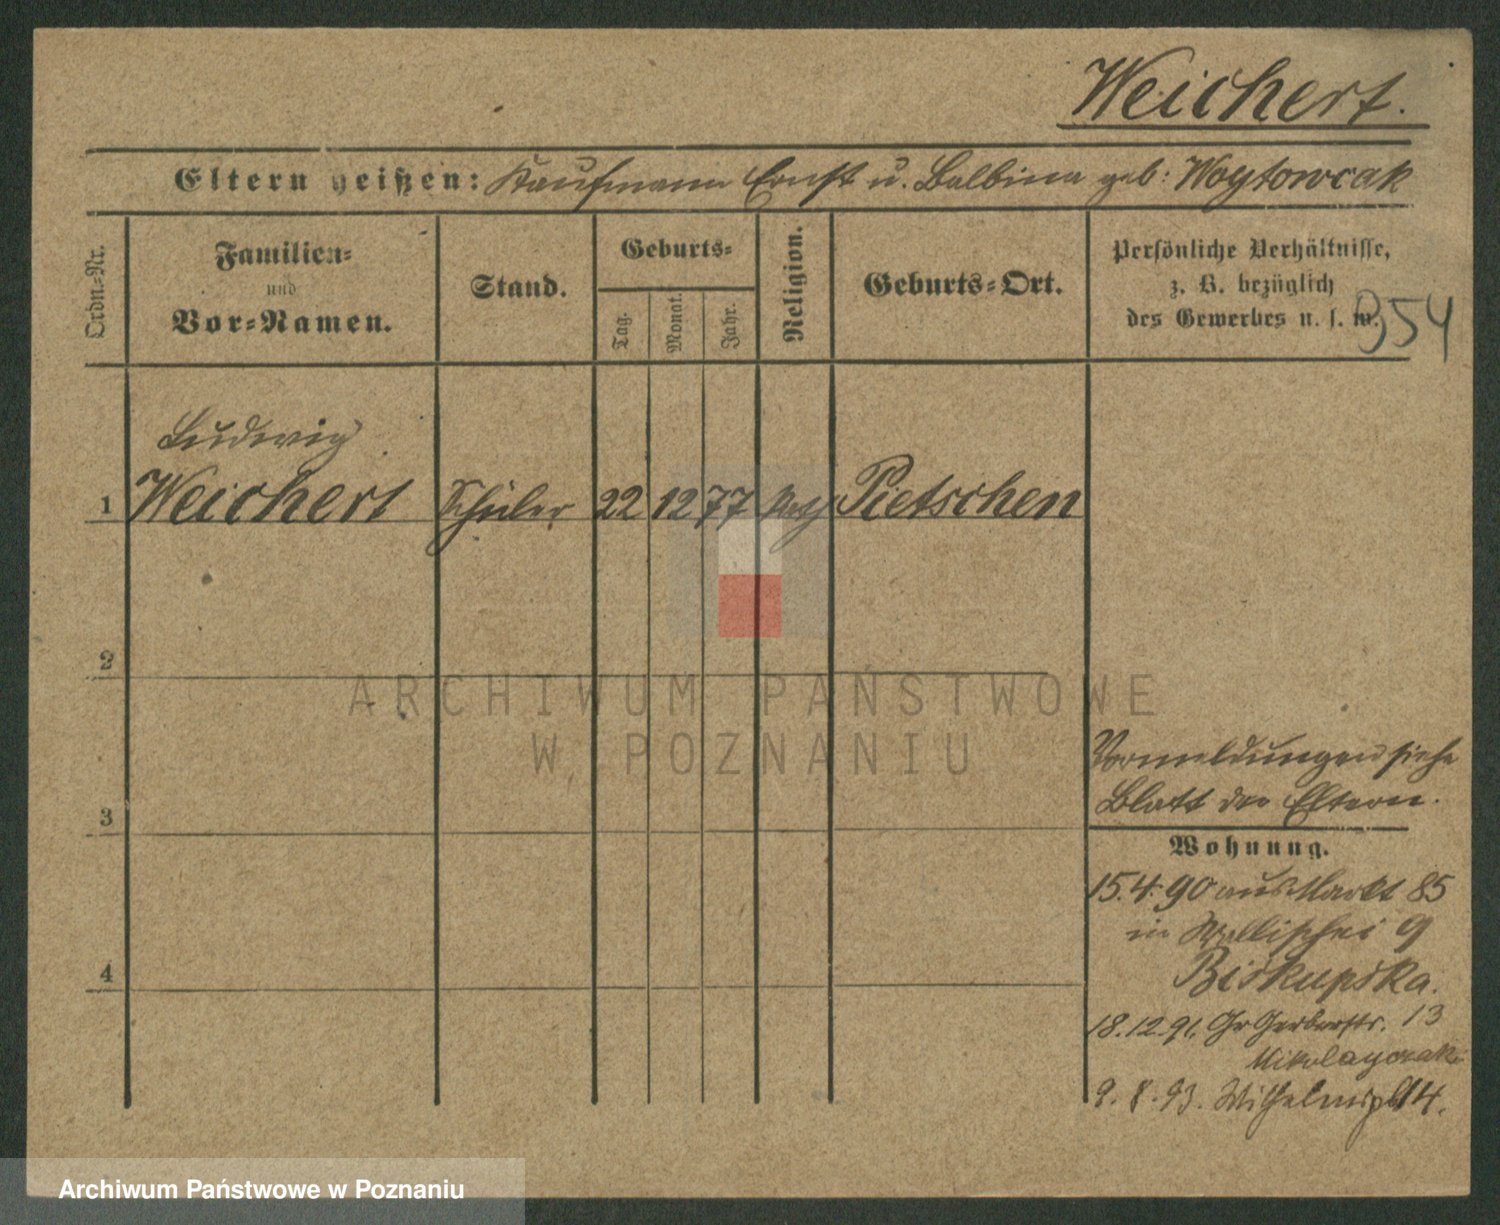 Weichert.
Eltern heißen: Kaufmann Ernst u. Balbina geb: Woytowcak
Ordn.-Nr.
Familien-
und
Vor-Namen.
Stand.
Geburts-
Tag.
Monat.
Jahr.
Religion.
Geburts-Ort.
Persönliche Verhältnisse,
z. B. bezüglich
des Gewerbes u. s. w.
354
Ludwig
1 Weichert Schüler 22 12 77 Kath Pietschen
2
ARCHIWUM PAŃSTWOWE
W POZNANIU
Vormeldungen siehe
3 Blatt der Eltern.
Wohnung.
15.4.90 aus Markt 85
in Wallischei 9
4 Biskupska.
18.12.91. Gr Gerberstr. 13
Mikolayczak
9.8.93. Wilhelmspl 14.
Archiwum Państwowe w Poznaniu